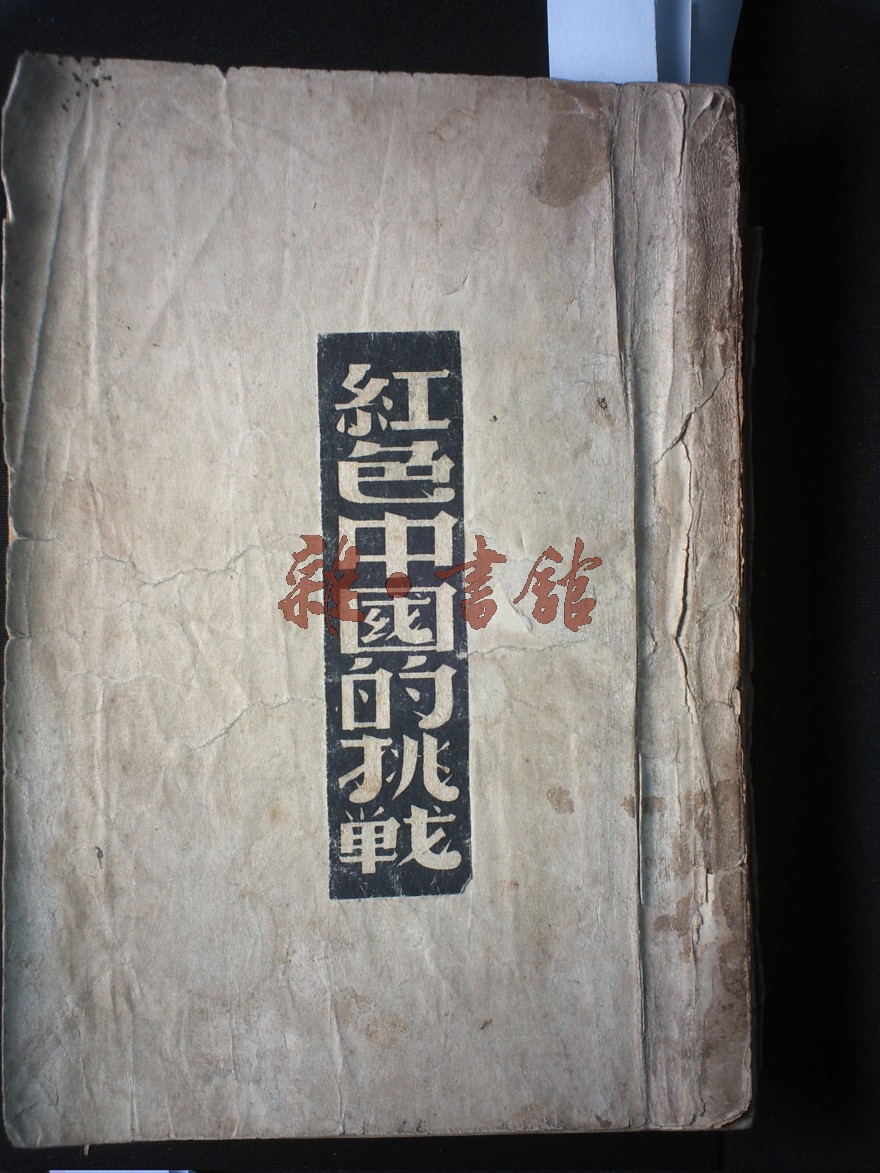 紅色中國的挑戦
雜·書館